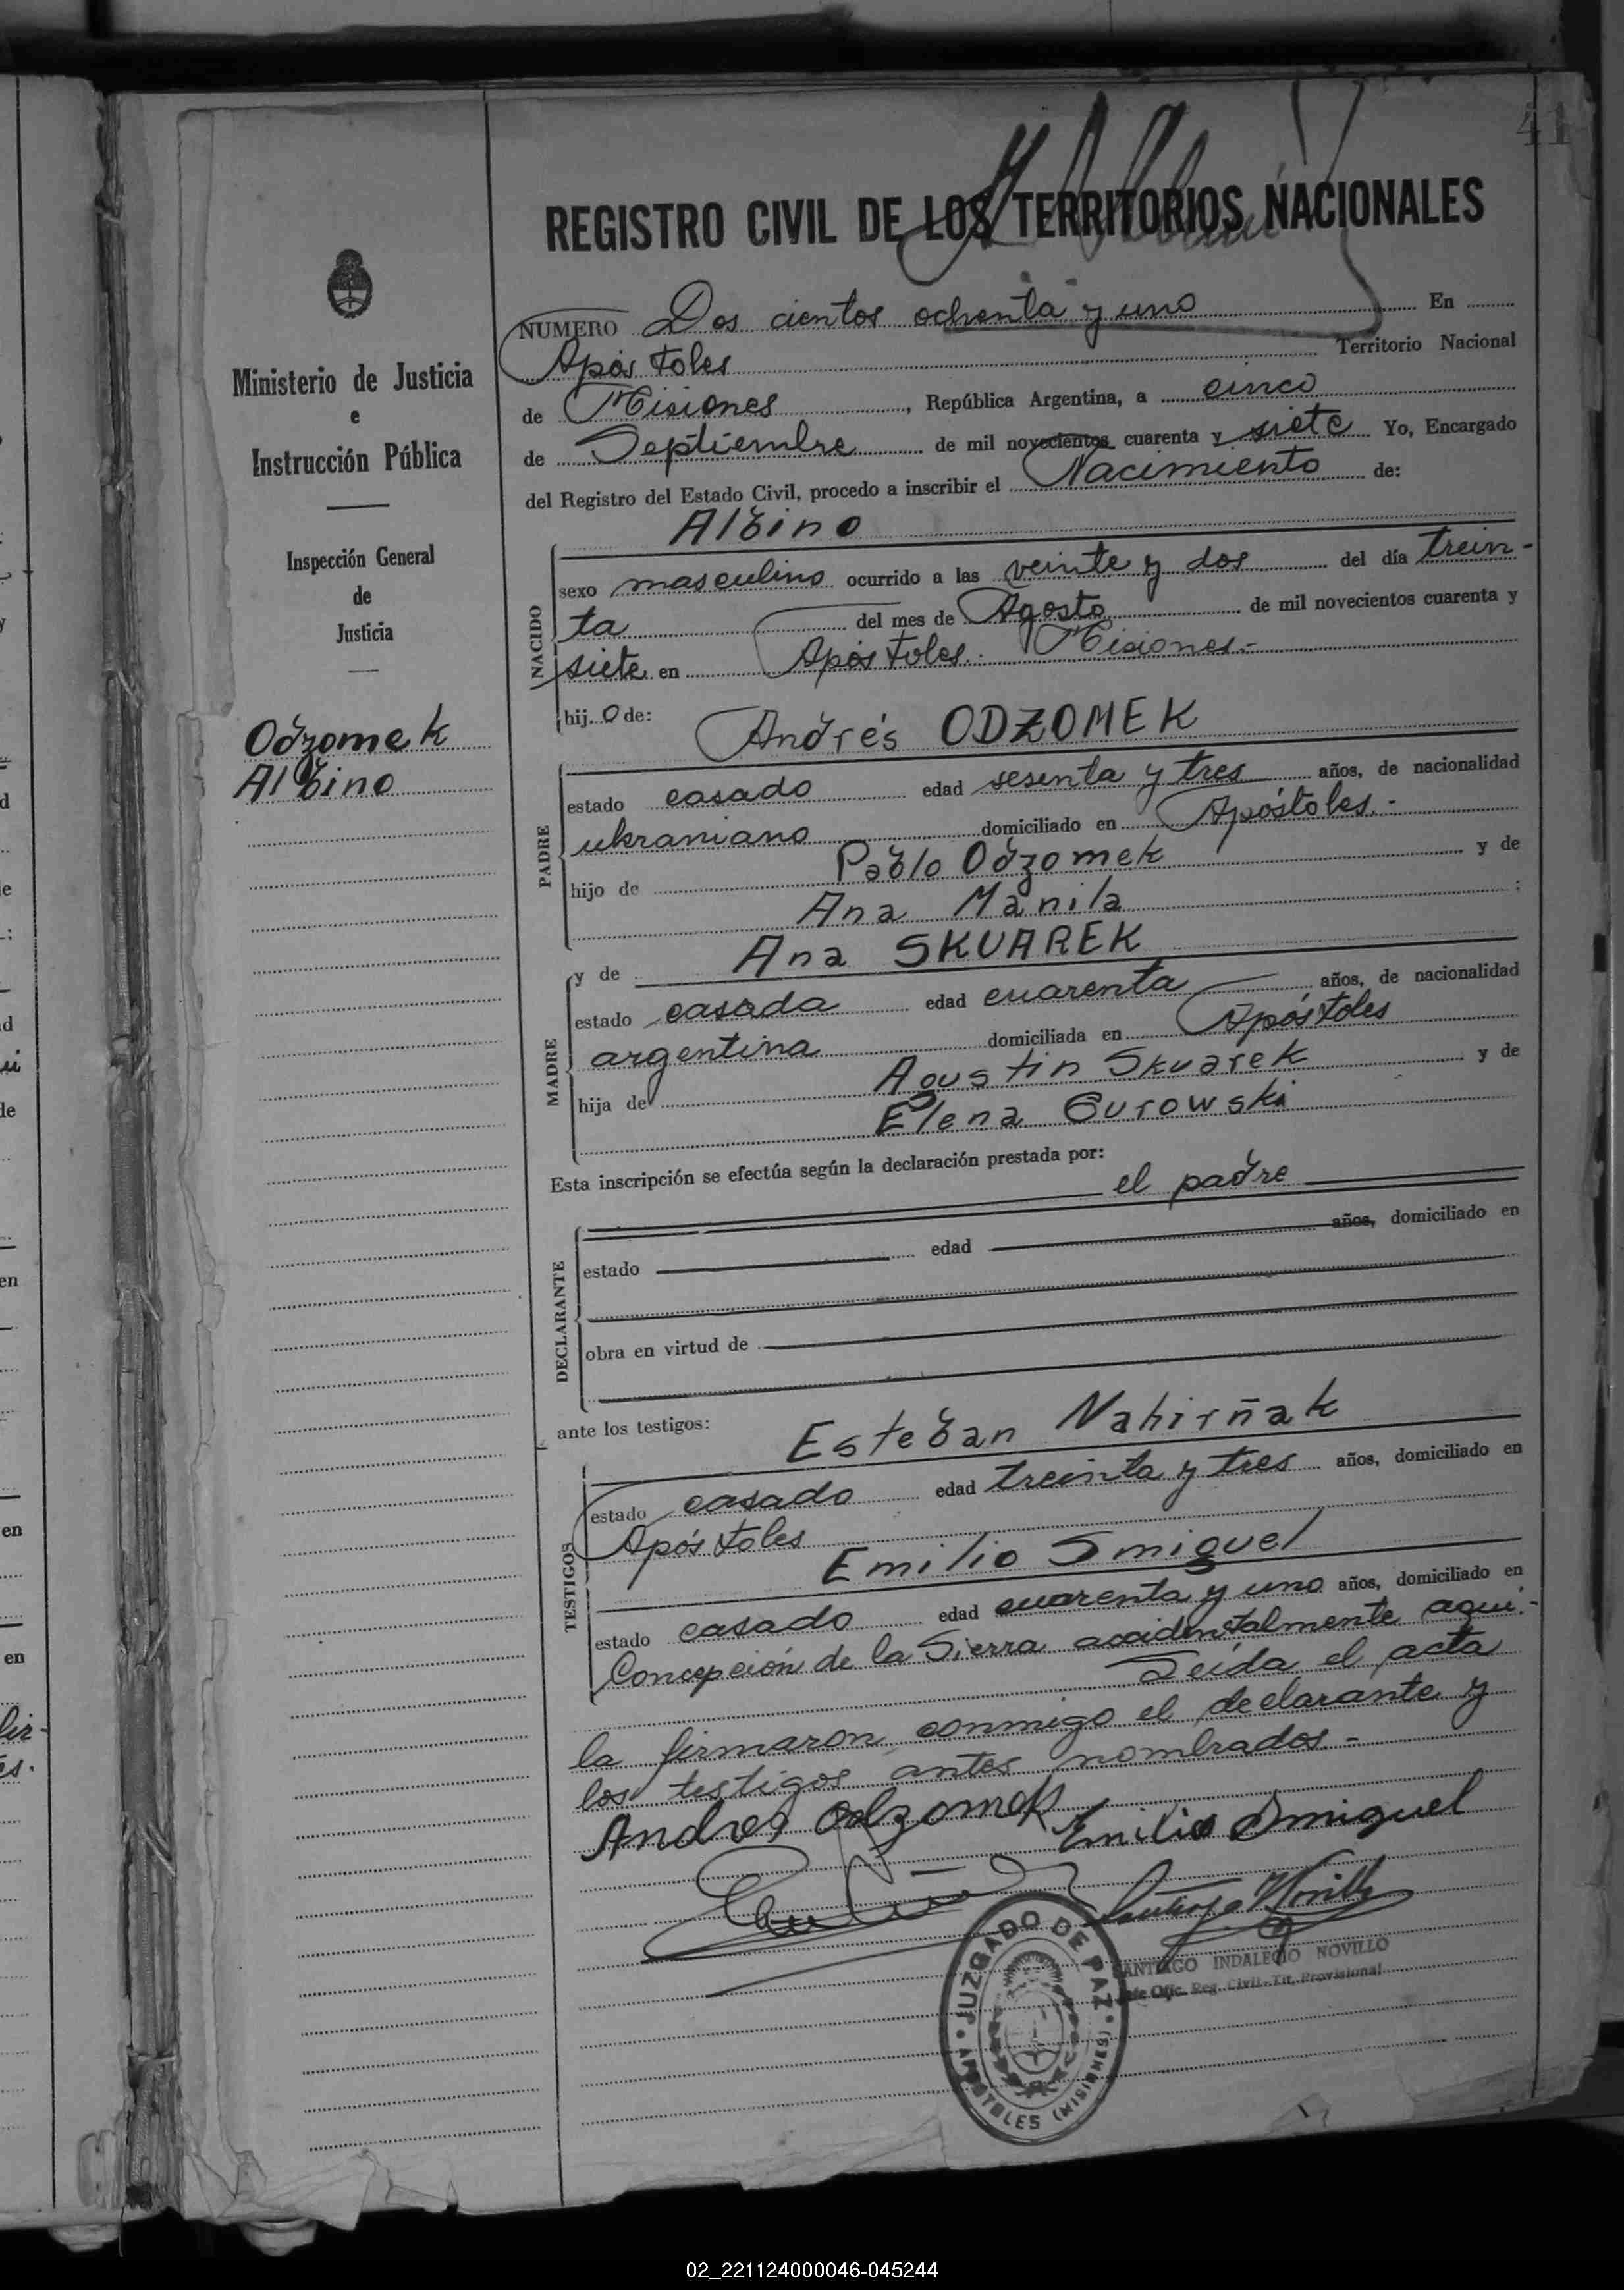 41
REGISTRO CIVIL DE LOS TERRITORIOS NACIONALES
NUMERO Dos cientos ochenta y uno En
Apóstoles Territorio Nacional
de Misiones, República Argentina, a cinco
de Septiembre de mil novecientos cuarenta y siete Yo, Encargado
del Registro del Estado Civil, procedo a inscribir el Nacimiento de:
Albino
NACIDO
sexo masculino ocurrido a las veinte y dos del día trein-
ta del mes de Agosto de mil novecientos cuarenta y
siete en Apóstoles. Misiones.-
hij.o de: Andrés ODZOMEK
PADRE
estado casado edad sesenta y tres años, de nacionalidad
ukraniano domiciliado en Apóstoles.-
hijo de Pablo Odzomek y de
Ana Manila :
y de Ana SKUAREK
MADRE
estado casada edad cuarenta años, de nacionalidad
argentina domiciliada en Apóstoles
hija de Agustin Skuarek y de
Elena Gurowski
Esta inscripción se efectúa según la declaración prestada por:
el padre
DECLARANTE
estado edad años, domiciliado en
obra en virtud de
ante los testigos: Esteban Nahirñak
TESTIGOS
estado casado edad treinta y tres años, domiciliado en
Apóstoles
Emilio Smiguel
estado casado edad cuarenta y uno años, domiciliado en
Concepción de la Sierra accidentalmente aquí.-
Leída el acta
la firmaron conmigo el declarante y
los testigos antes nombrados.-
Andres Odzomek Emilio Smiguel
JUZGADO DE PAZ
APOSTOLES (MISIONES)
SANTIAGO INDALECIO NOVILLO
Jefe Ofic. Reg. Civil. Tit. Provisional
Ministerio de Justicia
e
Instrucción Pública
Inspección General
de
Justicia
Odzomek
Albino
02_221124000046-045244